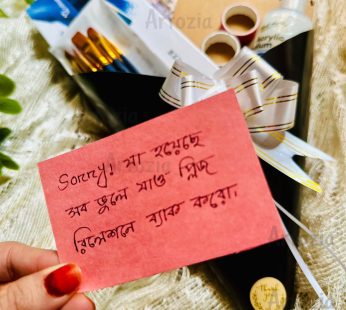 Artozia
Sorry! যা হয়েছে
সব ভুলে যাও প্লিজ
রিলেশনে ব্যাক করো.